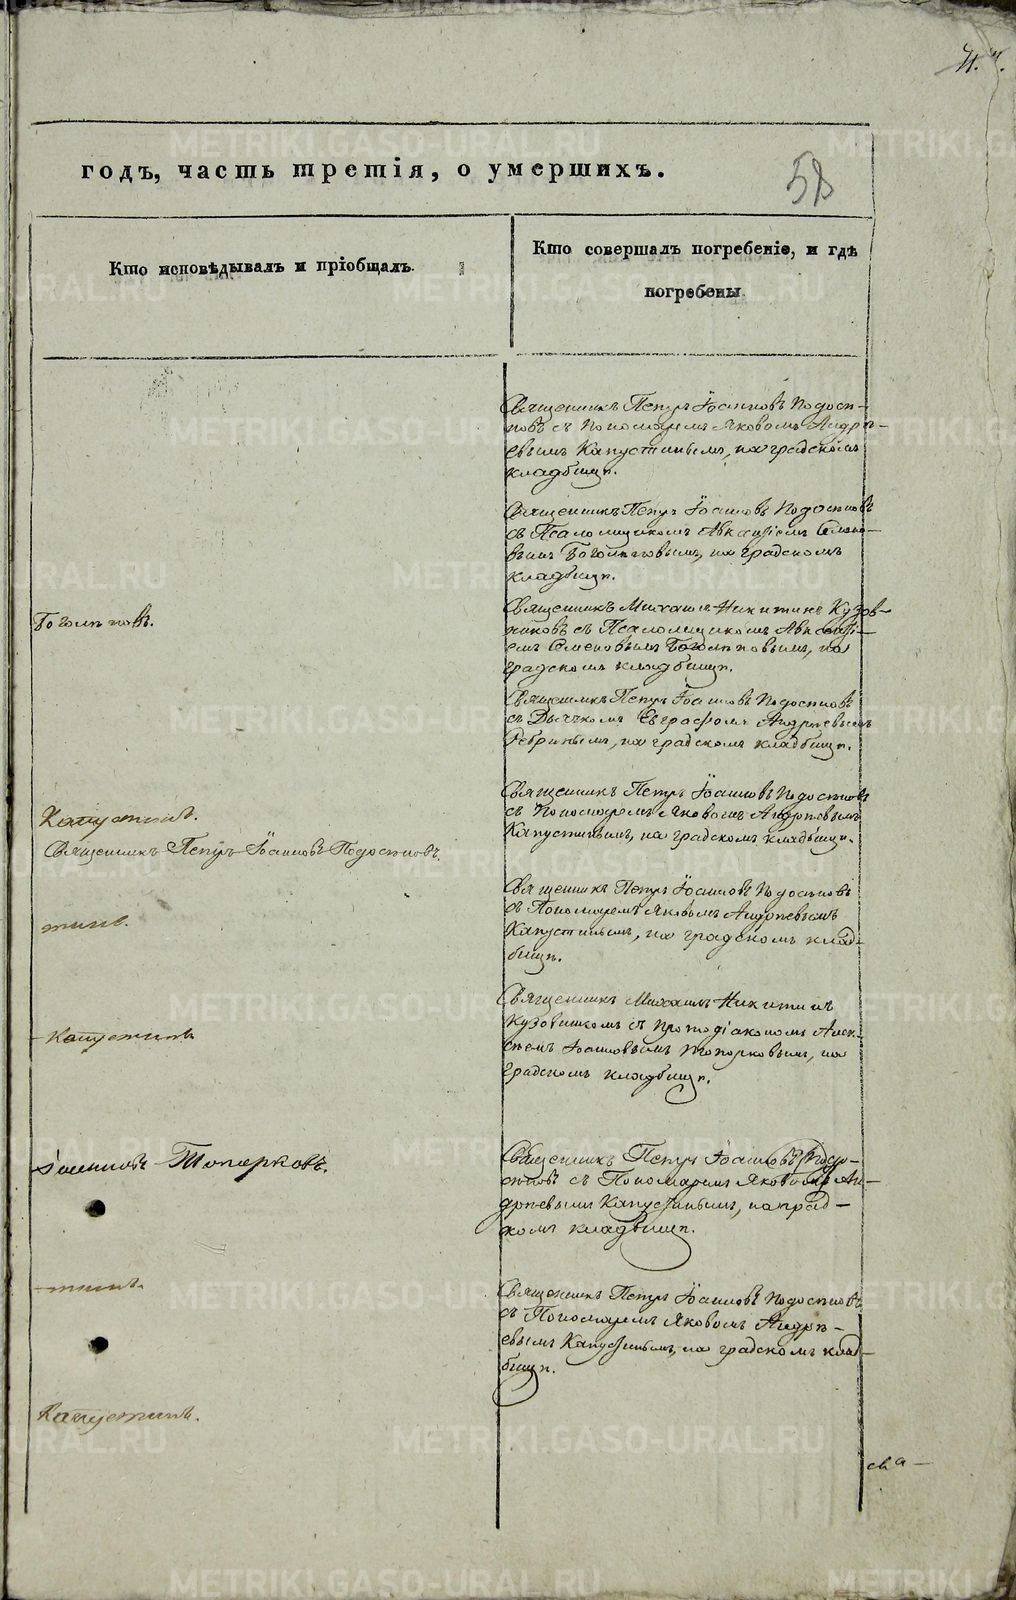 годъ, часть третія, о умершихъ.
58
Кто исповѣдывалъ и пріобщалъ.
Кто совершалъ погребеніе, и гдѣ
погребены
Священникъ Петръ Іоанновъ Подосѣ-
новъ съ Пономаремъ Яковомъ Андрѣ-
евымъ Капустинымъ, на градскомъ
кладбищѣ.
Священникъ Петръ Іоанновъ Подосѣновъ
съ Псаломщикомъ Авксентіемъ Семено-
вымъ Боголѣповымъ, на градскомъ
кладбищѣ.
Боголѣповъ.
Священникъ Михаилъ Никитинъ Кузов-
никовъ съ Псаломщикомъ Авксенті-
емъ Семеновымъ Боголѣповымъ, на
градскомъ кладбищѣ.
Священникъ Петръ Іоанновъ Подосѣновъ
съ Дьячкомъ Евграфомъ Андрѣевымъ
Ребринымъ, на градскомъ кладбищѣ.
Капустинъ.
Священникъ Петръ Іоанновъ Подосѣновъ.
Священникъ Петръ Іоанновъ Подосѣновъ
съ Пономаремъ Яковомъ Андрѣевымъ
Капустинымъ, на градскомъ кладбищѣ.
тинъ.
Священникъ Петръ Іоанновъ Подосѣновъ
съ Пономаремъ Яковомъ Андрѣевымъ
Капустинымъ, на градскомъ клад-
бищѣ.
Капустинъ
Священникъ Михаилъ Никитинъ
Кузовниковъ съ Протодіакономъ Алек-
сѣемъ Іоанновымъ Топорковымъ, на
градскомъ кладбищѣ.
Іоанновъ Топорковъ.
Священникъ Петръ Іоанновъ Подо-
сѣновъ съ Пономаремъ Яковомъ Ан-
дрѣевымъ Капустинымъ, на град-
скомъ кладбищѣ.
тинъ.
Священникъ Петръ Іоанновъ Подосѣновъ
съ Пономаремъ Яковомъ Андрѣ-
евымъ Капустинымъ, на градскомъ клад-
бищѣ.
Капустинъ.
METRIKI.GASO-URAL.RU